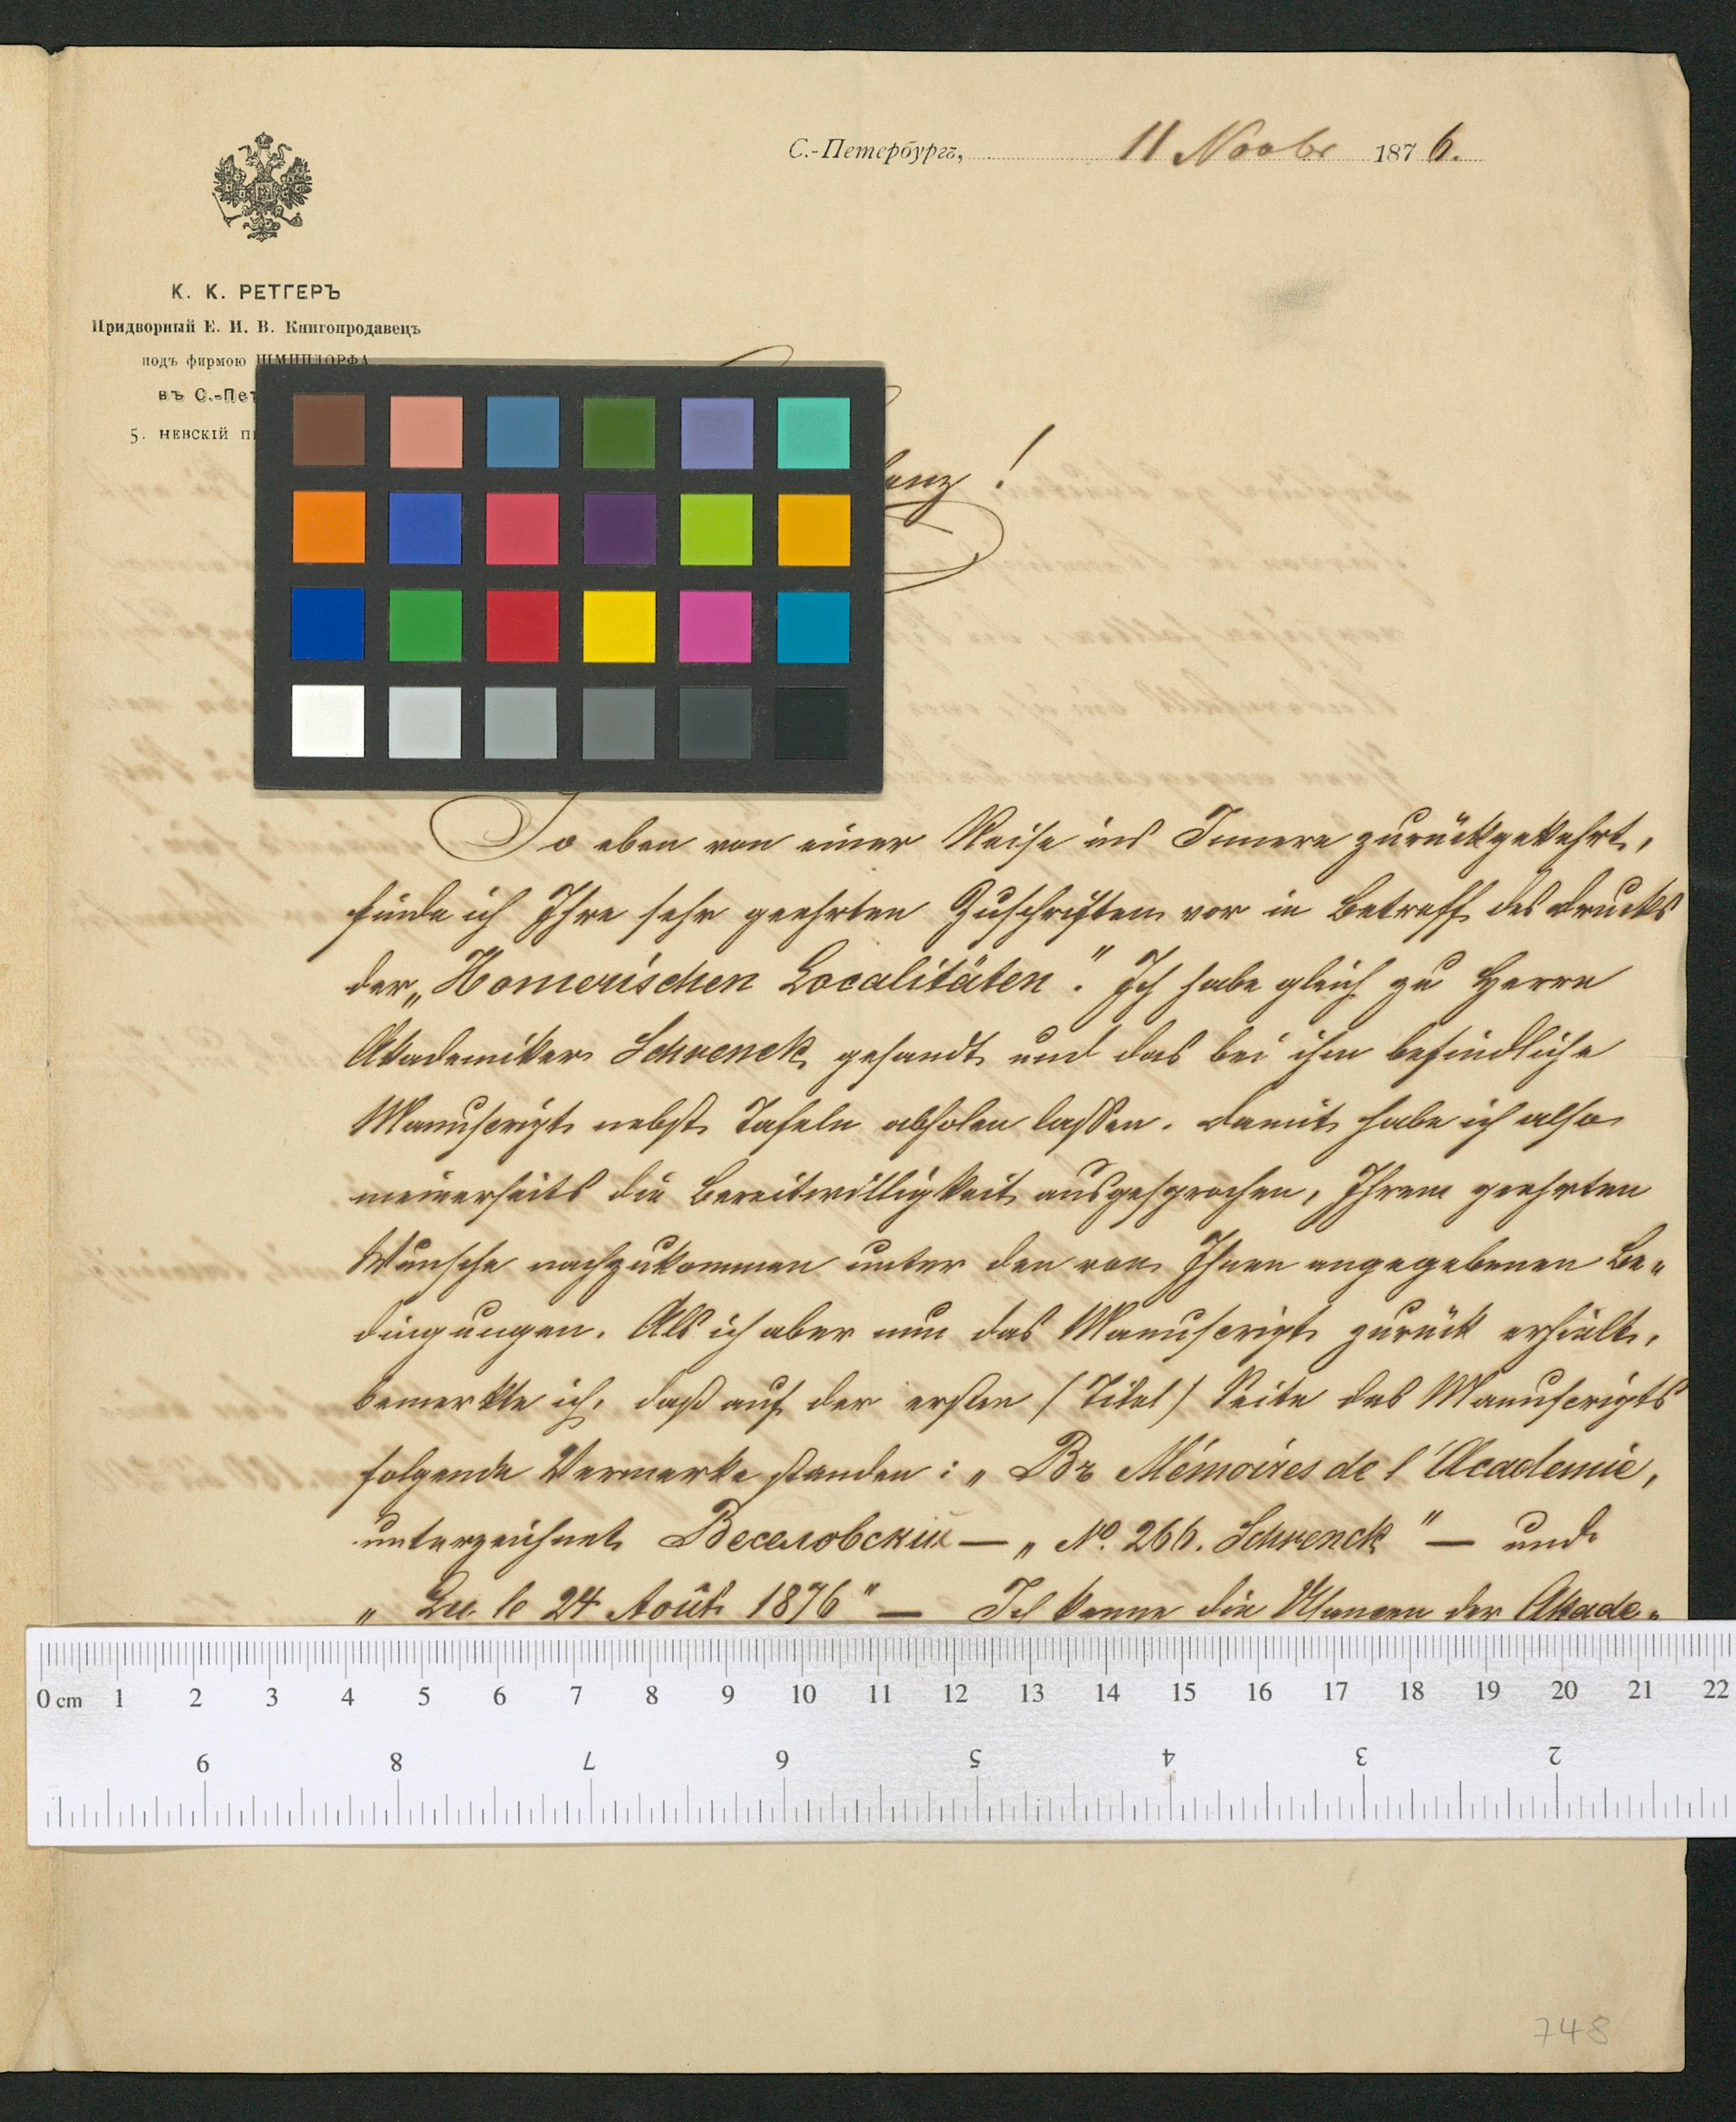 С.-Петербургъ, 11 Novbr 1876.
К. К. РЕТГЕРЪ
Придворный Е. И. В. Книгопродавецъ
подъ фирмою ШМИЦДОРФА
въ С.-Пет
5. НЕВСКІЙ П
lenz!
So eben von einer Reise ins Innere zurückgekehrt,
finde ich Ihre sehr geehrten Zuschriften vor in Betreff des Drucks
der „Homerischen Localitäten". Ich habe gleich zu Herrn
Akademiker Schrenck gesandt und das bei ihm befindliche
Manuscript nebst Tafeln abholen lassen. Damit habe ich also
meinerseits die Bereitwilligkeit ausgesprochen, Ihrem geehrten
Wunsche nachzukommen unter den von Ihnen angegebenen Be-
dingungen. Als ich aber nun das Manuscript zurück erhielt,
bemerkte ich, daß auf der ersten (Titel) Seite des Manuscripts
folgende Vermerke standen: „Въ Mémoires de l'Academie,
unterzeichnet Веселовскій — „No. 266. Schrenck" — und
„Lu le 24 Août 1876" — Ich kenne die Usancen der Akade-
0 cm 1 2 3 4 5 6 7 8 9 10 11 12 13 14 15 16 17 18 19 20 21 22
9 8 7 6 5 4 3 2
748